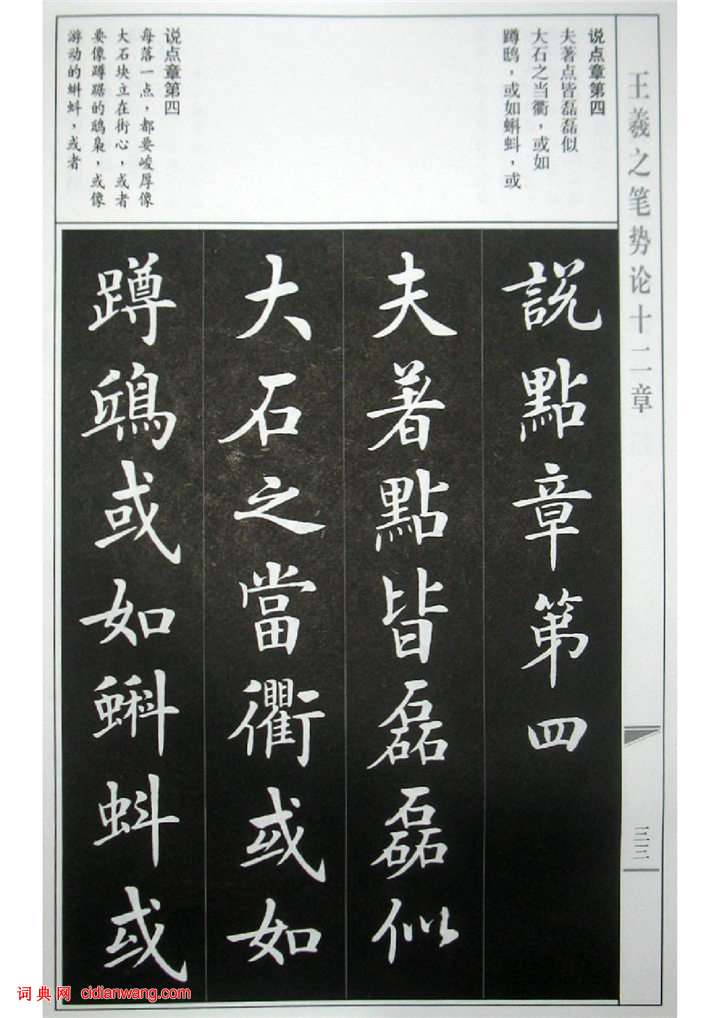 王羲之笔势论十二章
三三
说点章第四
夫著点皆磊磊似
大石之当衢，或如
蹲鸱，或如蝌蚪，或
说点章第四
每落一点，都要峻厚像
大石块立在街心，或者
要像蹲踞的鸱枭，或像
游动的蝌蚪，或者
說點章第四
夫著點皆磊磊似
大石之當衢或如
蹲鴟或如蝌蚪或
词典网 cidianwang.com